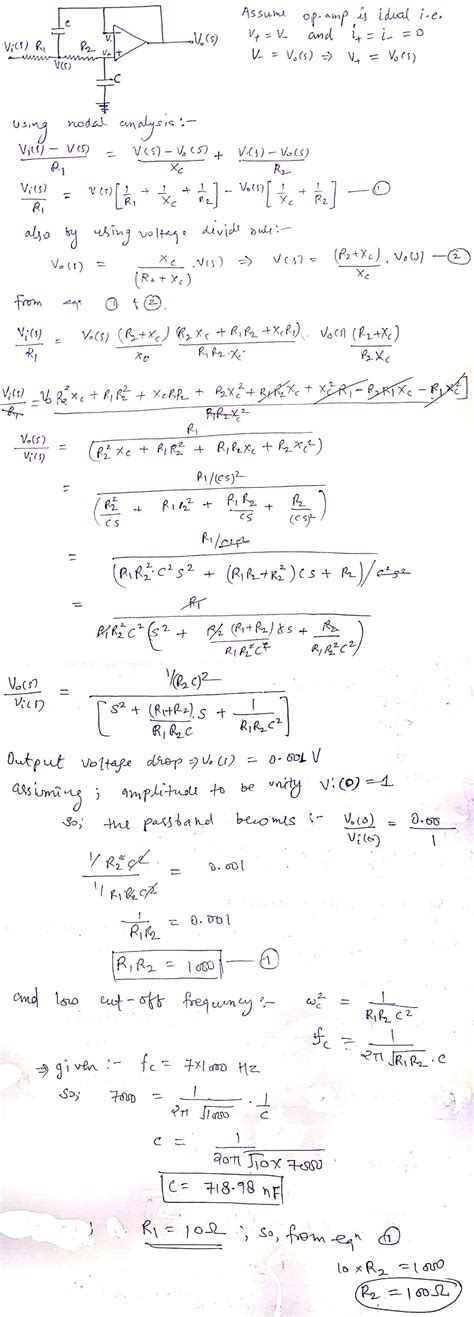 Assume op-amp is ideal i.e.
V+ = V- and i+ = i- = 0
V- = Vo(s) ⇒ V+ = Vo(s)
C
Vi(s) R1 R2 V- V+ Vo(s)
V(s)
C
using nodal analysis:-
(Vi(s) - V(s))/R1 = (V(s) - Vo(s))/Xc + (V(s) - Vo(s))/R2
Vi(s)/R1 = V(s)[1/R1 + 1/Xc + 1/R2] - Vo(s)[1/Xc + 1/R2] — ①
also by using voltage divide rule:-
Vo(s) = Xc/(R2+Xc) . V(s) ⇒ V(s) = (R2+Xc)/Xc . Vo(s) — ②
from eqn ① & ②.
Vi(s)/R1 = Vo(s) (R2+Xc)/Xc (R2Xc + R1R2 + XcR1)/(R1R2.Xc) - Vo(s) (R2+Xc)/(R2Xc)
Vo(s)/Vi(s) = R1/(R2²Xc + R1R2² + R1R2Xc + R2Xc²)
= R1/(CS)²/(R2²/CS + R1R2² + R1R2/CS + R2/(CS)²)
= R1/C²S²/(R1R2².C²S² + (R1R2+R2²)CS + R2)/C²S²
= R1/R1R2²C²(S² + R2(R1+R2)CS/R1R2²C² + R2/R1R2²C²)
Vo(s)/Vi(s) = 1/(R2C)²/[S² + (R1+R2)/R1R2C .S + 1/R1R2C²]
Output voltage drop ⇒ Vo(s) = 0.001 V
assuming ; amplitude to be unity Vi(0) = 1
so; the passband becomes :- Vo(0)/Vi(0) = 0.00/1
1/R2²C²/1/R1R2C² = 0.001
1/R1R2 = 0.001
R1R2 = 1000 — ①
and low cut-off frequency:- ωc² = 1/R1R2C²
fc = 1/2π√R1R2 . C
⇒ given :- fc = 7×1000 Hz
so; 7000 = 1/2π√1000 . 1/C
C = 1/20π√10 × 7000
C = 718.98 nF
; R1 = 10Ω ; so, from eqn ①
10 × R2 = 1000
R2 = 100Ω